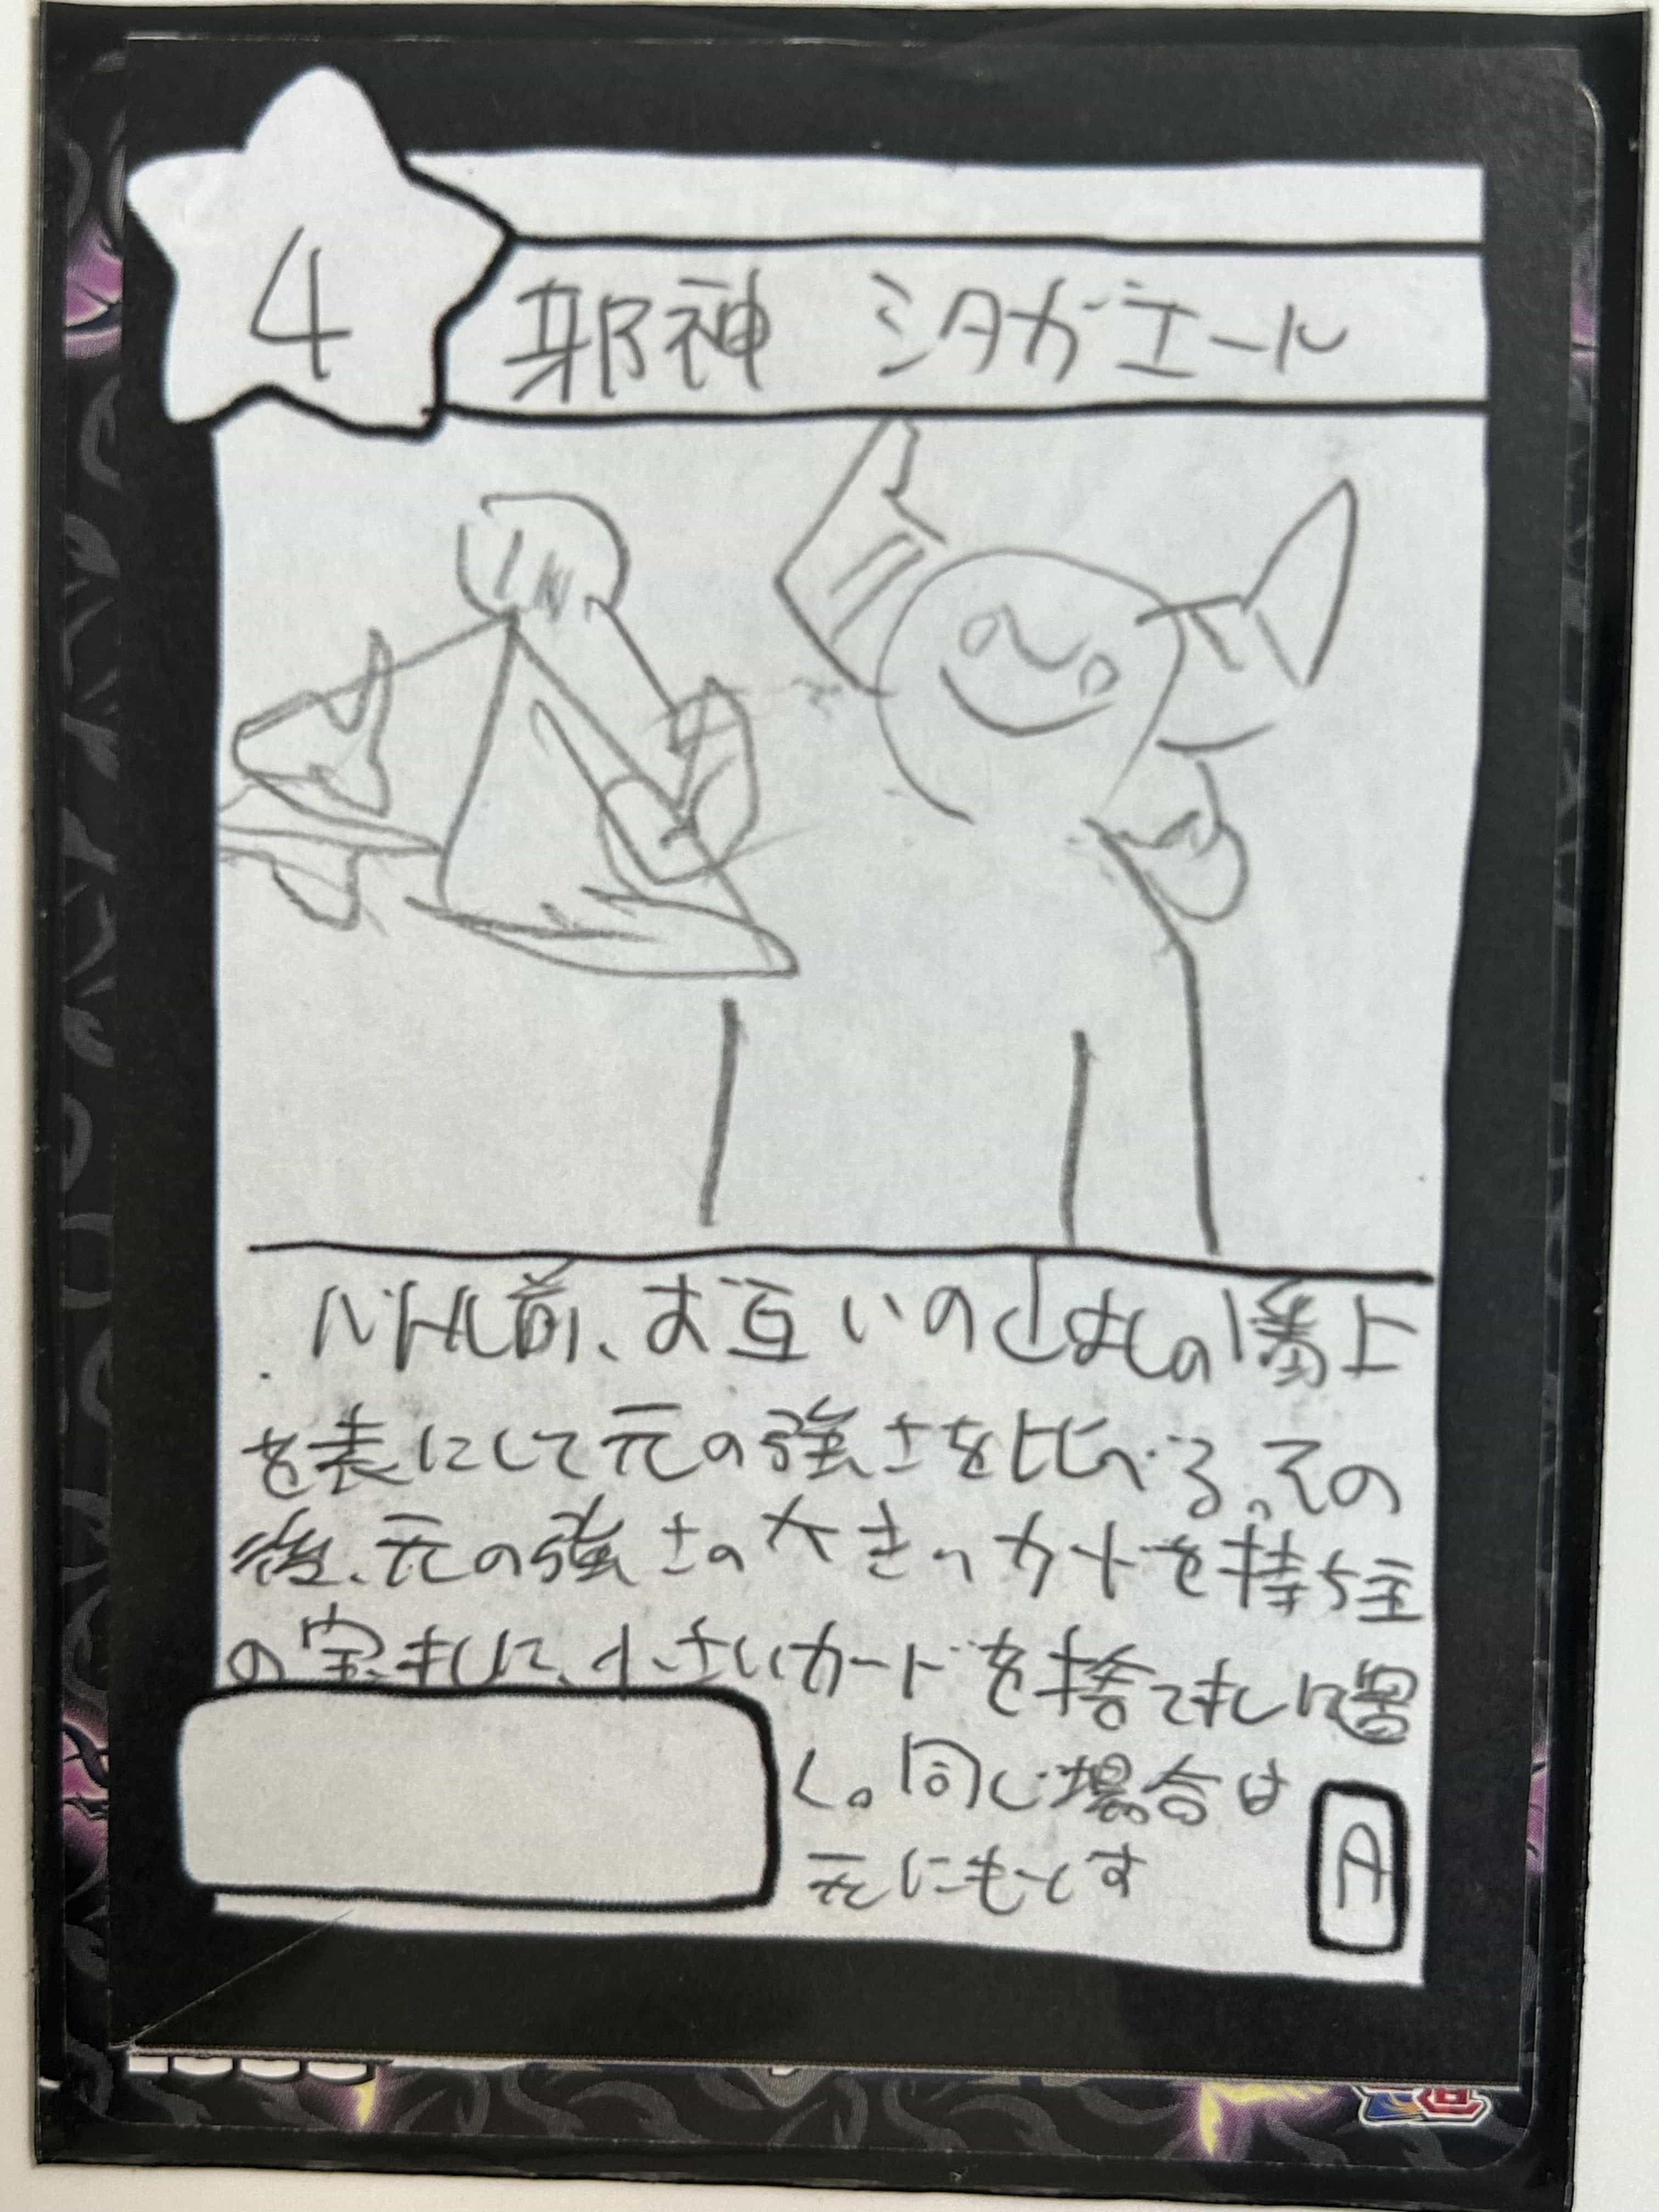 4
邪神 シタガエール
バトル前、お互いの山ふだの1番上
を表にして元の強さを比べる。その
後、元の強さの大きいカードを持ち主
の宝ましに、小さいカードを捨てましに置
く。同じ場合は
元にもどす
A